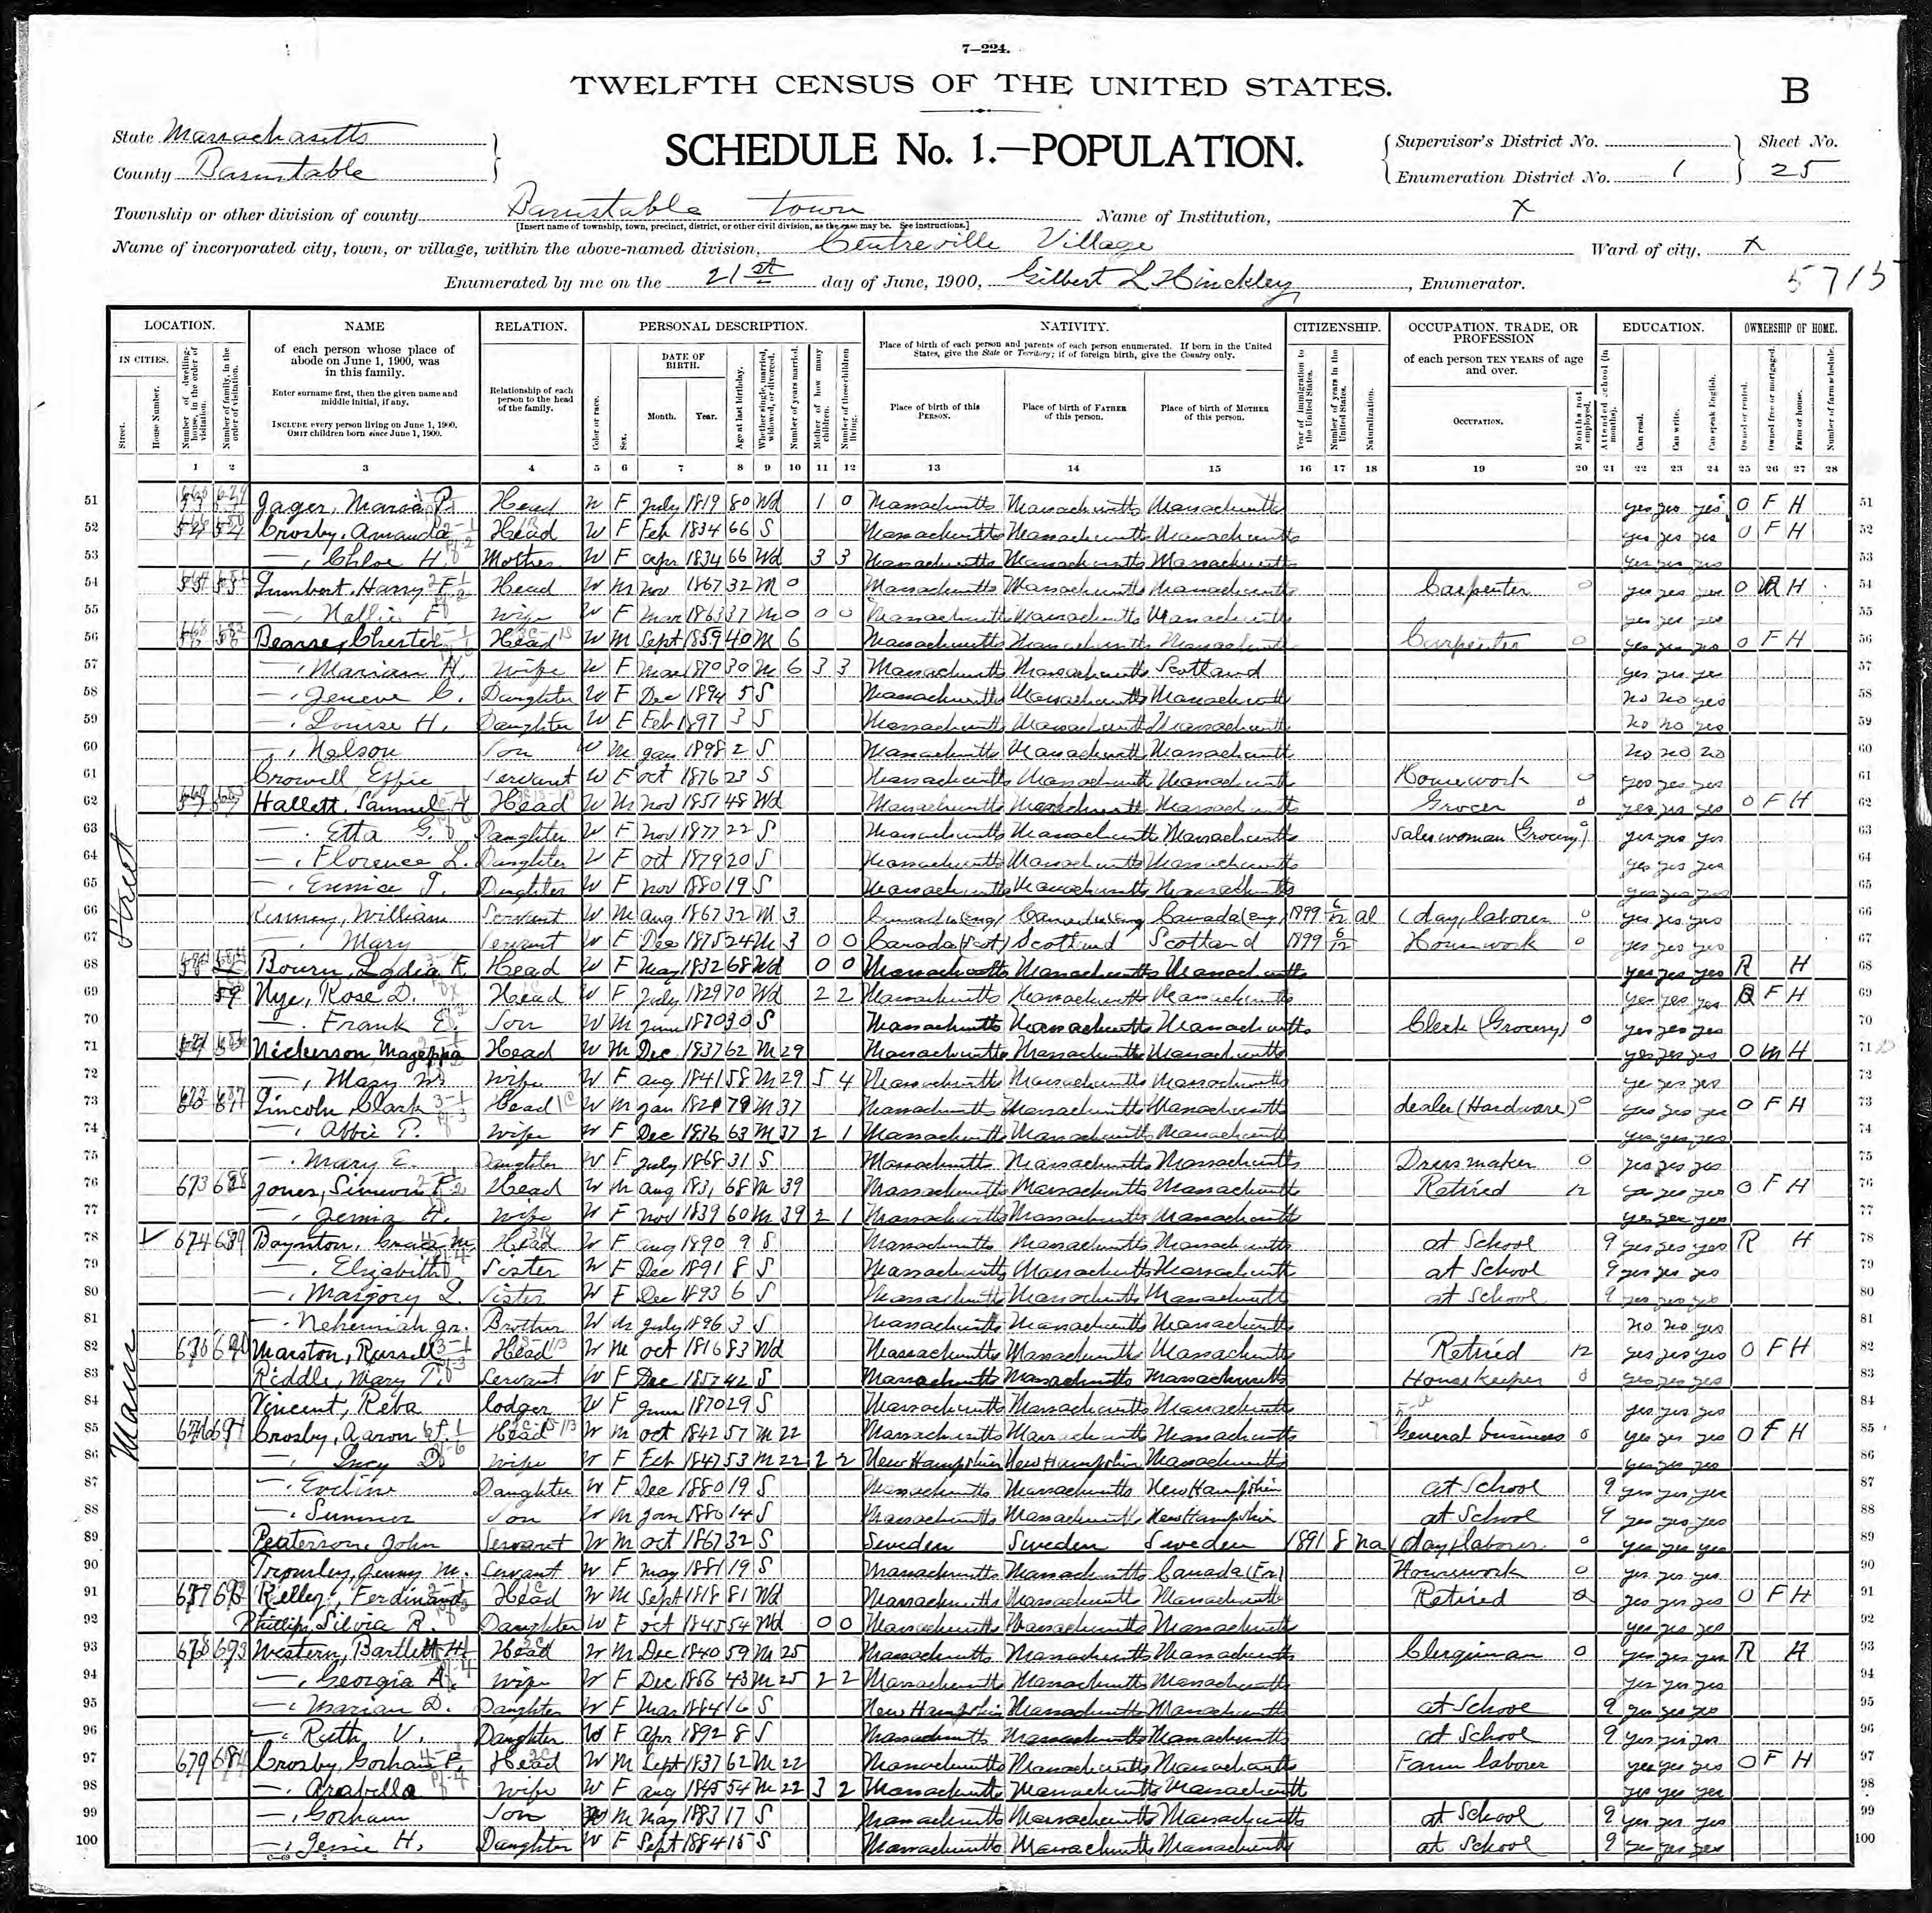 7—224.
TWELFTH CENSUS OF THE UNITED STATES.
B
State Massachusetts
SCHEDULE No. 1.—POPULATION.
Supervisor's District No.
Sheet No.
County Barnstable
Enumeration District No. 1
25
Township or other division of county Barnstable town
Name of Institution, X
[Insert name of township, town, precinct, district, or other civil division, as the case may be. See instructions.]
Name of incorporated city, town, or village, within the above-named division, Centreville Village
Ward of city, X
Enumerated by me on the 21st day of June, 1900, Gilbert L Hinckley, Enumerator.
5715
LOCATION. NAME RELATION. PERSONAL DESCRIPTION. NATIVITY. CITIZENSHIP. OCCUPATION, TRADE, OR PROFESSION EDUCATION. OWNERSHIP OF HOME.
IN CITIES.
Street.
House Number.
Number of dwelling-house, in the order of visitation.
Number of family, in the order of visitation.
of each person whose place of abode on June 1, 1900, was in this family.
Enter surname first, then the given name and middle initial, if any.
INCLUDE every person living on June 1, 1900.
OMIT children born since June 1, 1900.
Relationship of each person to the head of the family.
Color or race.
Sex.
DATE OF BIRTH.
Month. Year.
Age at last birthday.
Whether single, married, widowed, or divorced.
Number of years married.
Mother of how many children.
Number of these children living.
Place of birth of each person and parents of each person enumerated. If born in the United States, give the State or Territory; if of foreign birth, give the Country only.
Place of birth of this PERSON.
Place of birth of FATHER of this person.
Place of birth of MOTHER of this person.
Year of immigration to the United States.
Number of years in the United States.
Naturalization.
of each person TEN YEARS of age and over.
OCCUPATION.
Months not employed.
Attended school (in months).
Can read.
Can write.
Can speak English.
Owned or rented.
Owned free or mortgaged.
Farm or house.
Number of farm schedule.
1 2 3 4 5 6 7 8 9 10 11 12 13 14 15 16 17 18 19 20 21 22 23 24 25 26 27 28
Main Street
51 Jager, Maria P. Head W F July 1819 80 Wd 1 0 Massachusetts Massachusetts Massachusetts yes yes yes O F H 51
52 Crosby, Amanda Head W F Feb 1834 66 S Massachusetts Massachusetts Massachusetts yes yes yes O F H 52
53 —, Chloe H. Mother W F apr 1834 66 Wd 3 3 Massachusetts Massachusetts Massachusetts yes yes yes 53
54 Lumbert, Harry F. Head W M nov 1867 32 M 0 Massachusetts Massachusetts Massachusetts Carpenter 0 yes yes yes O M H 54
55 —, Hallie F wife W F mar 1863 37 M 0 0 0 Massachusetts Massachusetts Massachusetts yes yes yes 55
56 Bearse, Chester Head W M Sept 1859 40 M 6 Massachusetts Massachusetts Massachusetts Carpenter 0 yes yes yes O F H 56
57 —, Marian H. wife W F mar 1870 30 M 6 3 3 Massachusetts Massachusetts Scotland yes yes yes 57
58 —, Geneve C. Daughter W F Dec 1894 5 S Massachusetts Massachusetts Massachusetts no no yes 58
59 —, Louise H. Daughter W F Feb 1897 3 S Massachusetts Massachusetts Massachusetts no no yes 59
60 —, Nelson Son W M jan 1898 2 S Massachusetts Massachusetts Massachusetts no no no 60
61 Crowell Effie Servant W F oct 1876 23 S Massachusetts Massachusetts Massachusetts Housework 0 yes yes yes 61
62 Hallett, Samuel H Head W M nov 1851 48 Wd Massachusetts Massachusetts Massachusetts Grocer 0 yes yes yes O F H 62
63 —. Etta G. Daughter W F nov 1877 22 S Massachusetts Massachusetts Massachusetts Saleswoman (Grocery) 0 yes yes yes 63
64 —, Florence L. Daughter W F oct 1879 20 S Massachusetts Massachusetts Massachusetts yes yes yes 64
65 —. Eunice T. Daughter W F nov 1880 19 S Massachusetts Massachusetts Massachusetts yes yes yes 65
66 Kinney, William Servant W M aug 1867 32 M 3 Canada (Eng) Canada (Eng) Canada (Eng) 1899 6/12 al (day) laborer 0 yes yes yes 66
67 —. Mary Servant W F Dec 1875 24 M 3 0 0 Canada (Scot) Scotland Scotland 1899 6/12 Housework 0 yes yes yes 67
68 Bourn, Lydia F. Head W F May 1832 68 Wd 0 0 Massachusetts Massachusetts Massachusetts yes yes yes R H 68
69 59 Nye, Rose D. Head W F July 1829 70 Wd 2 2 Massachusetts Massachusetts Massachusetts yes yes yes O F H 69
70 —. Frank E. Son W M june 1870 30 S Massachusetts Massachusetts Massachusetts Clerk (Grocery) 0 yes yes yes 70
71 Nickerson, Mazeppa Head W M Dec 1837 62 M 29 Massachusetts Massachusetts Massachusetts yes yes yes O M H 71
72 —, Mary W. wife W F aug 1841 58 M 29 5 4 Massachusetts Massachusetts Massachusetts yes yes yes 72
73 Lincoln, Clark Head W M jan 1821 79 M 37 Massachusetts Massachusetts Massachusetts dealer (Hardware) 0 yes yes yes O F H 73
74 —, Abbie T. wife W F Dec 1836 63 M 37 2 1 Massachusetts Massachusetts Massachusetts yes yes yes 74
75 —. Mary E. Daughter W F July 1868 31 S Massachusetts Massachusetts Massachusetts Dressmaker 0 yes yes yes 75
76 673 688 Jones, Simeon Head W M aug 1831 68 M 39 Massachusetts Massachusetts Massachusetts Retired 12 yes yes yes O F H 76
77 —, H. wife W F nov 1839 60 M 39 2 1 Massachusetts Massachusetts Massachusetts yes yes yes 77
78 674 689 Boynton, Grace M. Head W F aug 1890 9 S Massachusetts Massachusetts Massachusetts at School 9 yes yes yes R H 78
79 —. Elizabeth Sister W F Dec 1891 8 S Massachusetts Massachusetts Massachusetts at School 9 yes yes yes 79
80 —, Margory L. Sister W F Dec 1893 6 S Massachusetts Massachusetts Massachusetts at School 9 yes yes yes 80
81 —. Nehemiah Jr. Brother W M July 1896 3 S Massachusetts Massachusetts Massachusetts no no yes 81
82 690 Marston, Russell Head W M oct 1816 83 Wd Massachusetts Massachusetts Massachusetts Retired 12 yes yes yes O F H 82
83 Riddle, Mary T. Servant W F Dec 1857 42 S Massachusetts Massachusetts Massachusetts Housekeeper 0 yes yes yes 83
84 Vincent, Reba lodger W F june 1870 29 S Massachusetts Massachusetts Massachusetts yes yes yes 84
85 676 691 Crosby, Aaron Head W M oct 1842 57 M 22 Massachusetts Massachusetts Massachusetts General business 0 yes yes yes O F H 85
86 —, Lucy D wife W F Feb 1847 53 M 22 2 2 New Hampshire New Hampshire Massachusetts yes yes yes 86
87 —. Eveline Daughter W F Dec 1880 19 S Massachusetts Massachusetts New Hampshire at School 9 yes yes yes 87
88 —. Sumner Son W M jan 1886 14 S Massachusetts Massachusetts New Hampshire at School 9 yes yes yes 88
89 Peaterson, John Servant W M oct 1867 32 S Sweden Sweden Sweden 1891 8 na (day) laborer 0 yes yes yes 89
90 Jenny M. Servant W F may 1881 19 S Massachusetts Massachusetts Canada (Fr) Housework 0 yes yes yes 90
91 677 692 Kelley, Ferdinand Head W M Sept 1818 81 Wd Massachusetts Massachusetts Massachusetts Retired yes yes yes O F H 91
92 Phillips, Silvia R. Daughter W F oct 1845 54 Wd 0 0 Massachusetts Massachusetts Massachusetts yes yes yes 92
93 678 693 Western, Bartlett H Head W M Dec 1840 59 M 25 Massachusetts Massachusetts Massachusetts Clergiman 0 yes yes yes R H 93
94 —, Georgia A. wife W F Dec 1856 43 M 25 2 2 Massachusetts Massachusetts Massachusetts yes yes yes 94
95 —, Marian D. Daughter W F Mar 1884 16 S New Hampshire Massachusetts Massachusetts at School 9 yes yes yes 95
96 —. Ruth V. Daughter W F Apr 1892 8 S Massachusetts Massachusetts Massachusetts at School 9 yes yes yes 96
97 679 694 Crosby Gorham F. Head W M Sept 1837 62 M 22 Massachusetts Massachusetts Massachusetts Farm laborer yes yes yes O F H 97
98 —. Arabella wife W F aug 1845 54 M 22 3 2 Massachusetts Massachusetts Massachusetts yes yes yes 98
99 —, Gorham Son W M May 1883 17 S Massachusetts Massachusetts Massachusetts at School 9 yes yes yes 99
100 —, Jessie H. Daughter W F Sept 1884 15 S Massachusetts Massachusetts Massachusetts at School 9 yes yes yes 100